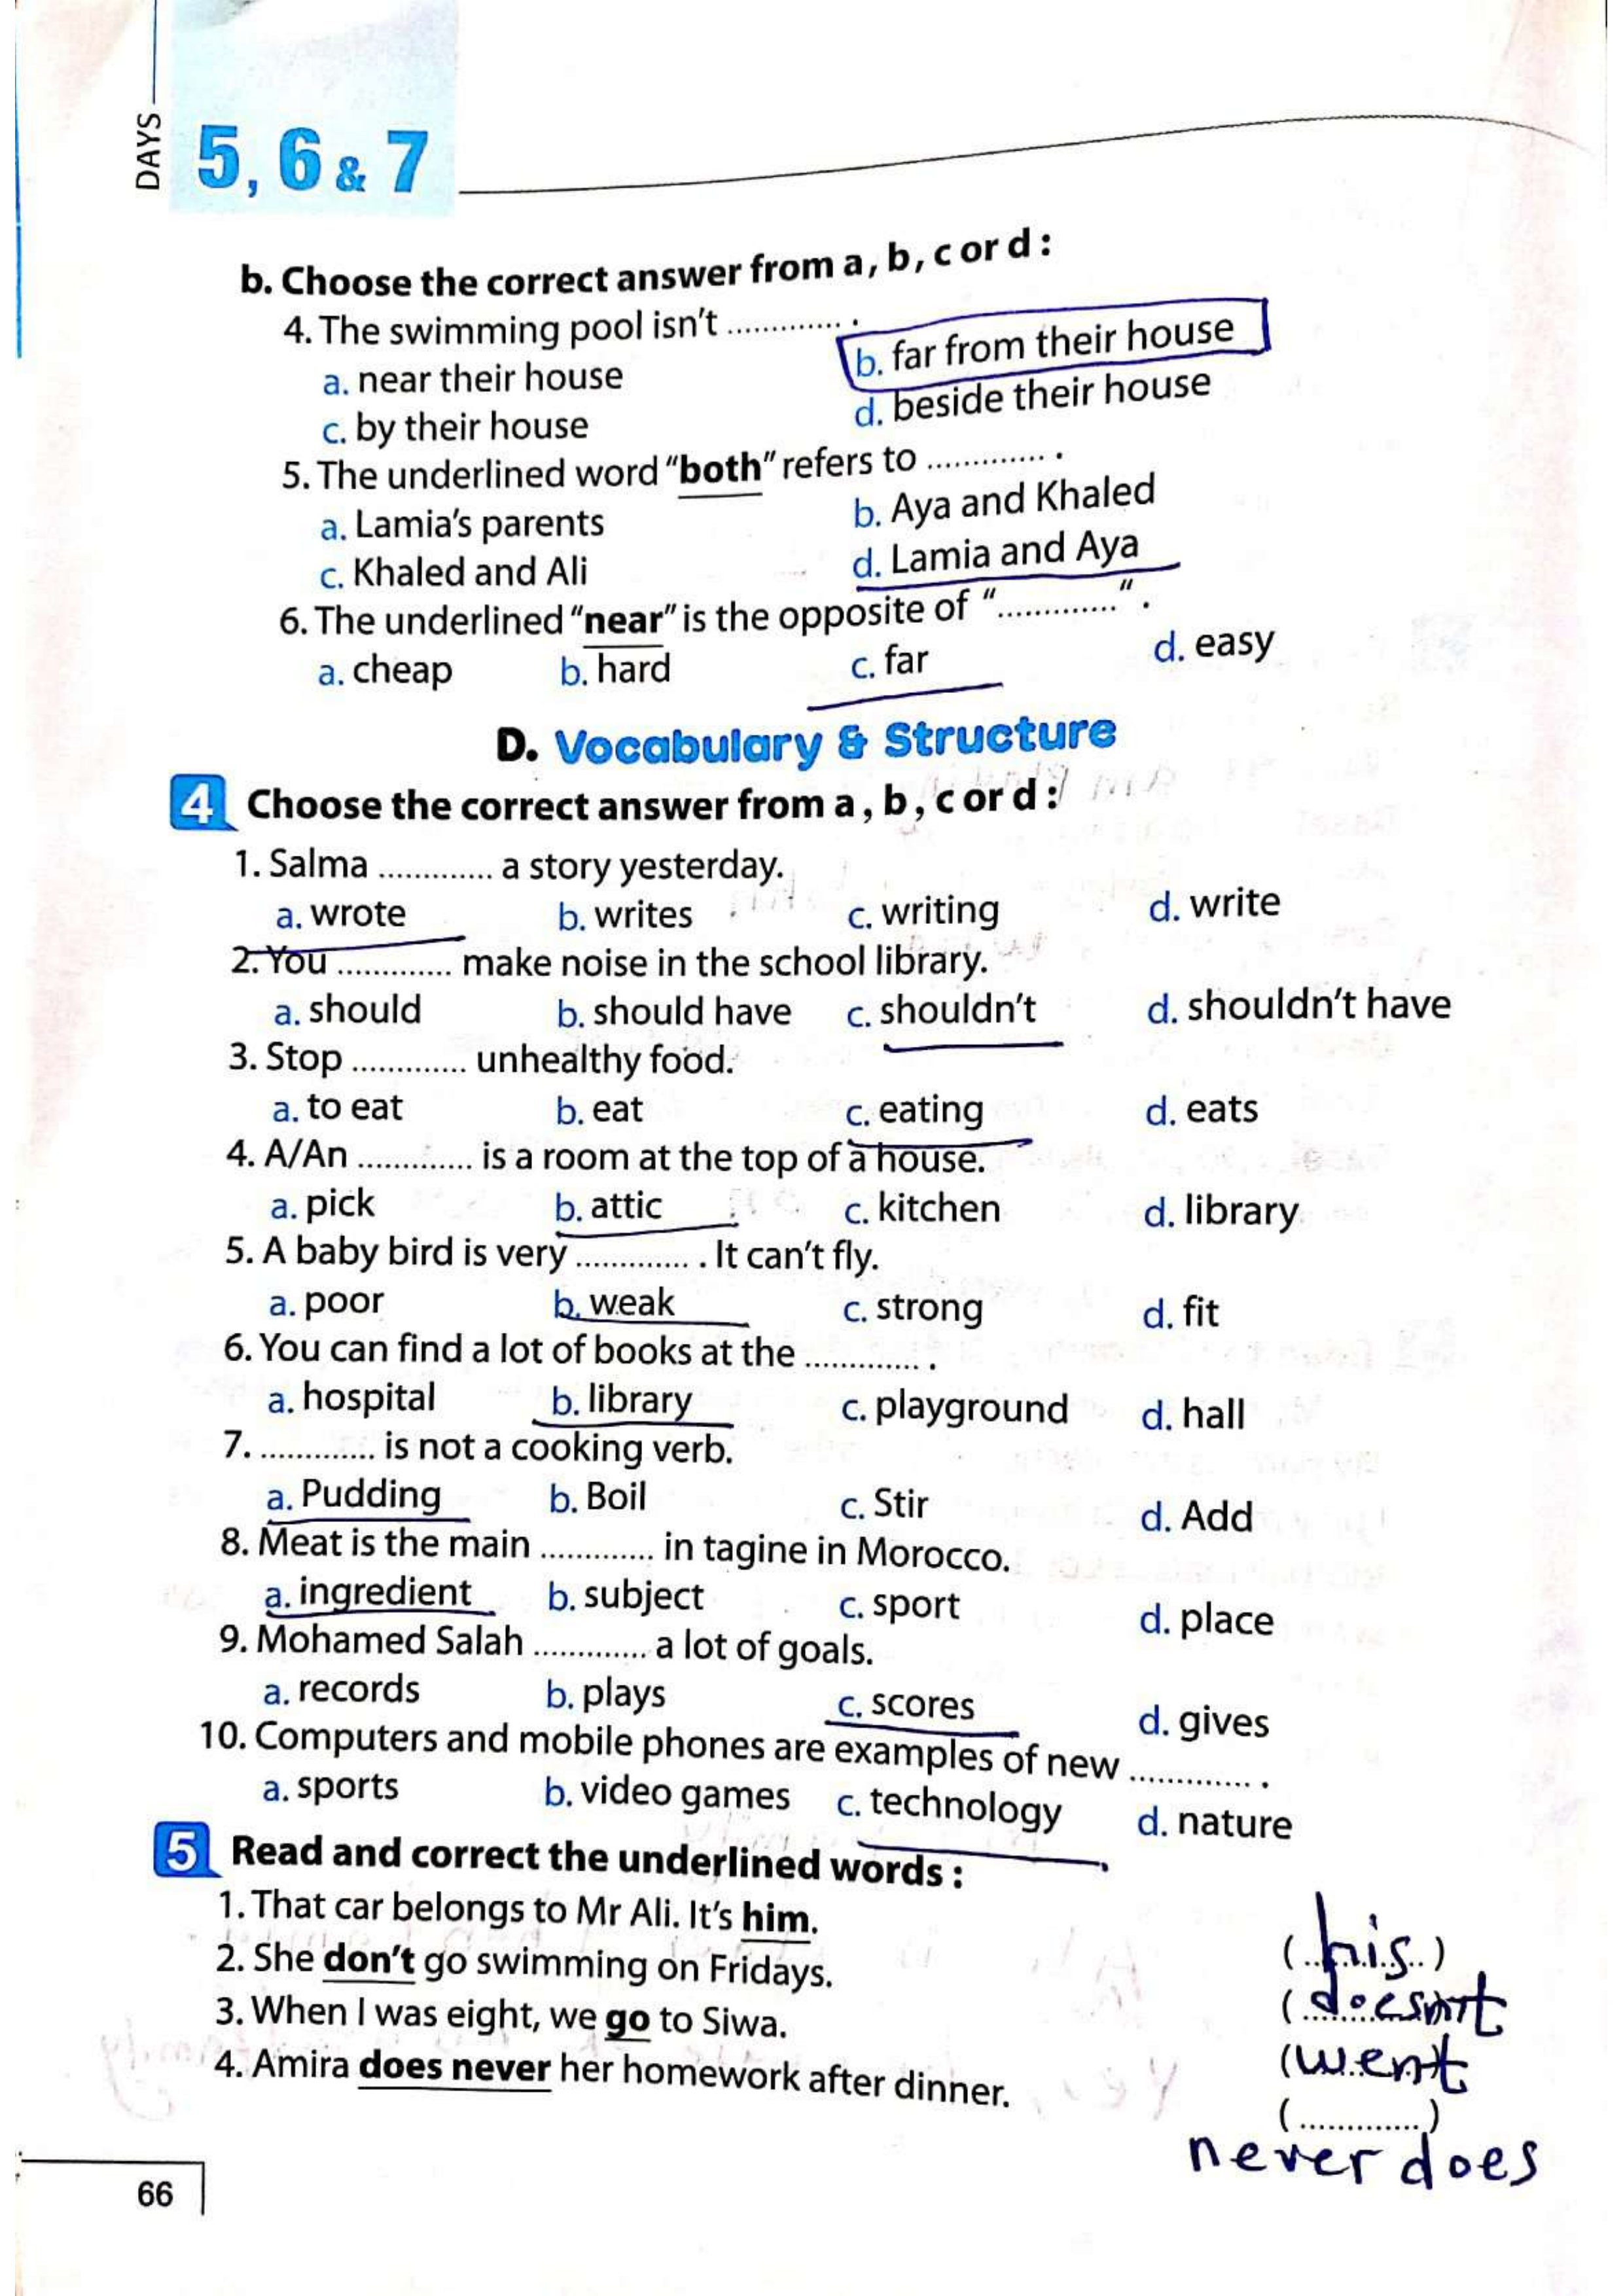 DAYS
5, 6 & 7
b. Choose the correct answer from a, b, c or d :
4. The swimming pool isn't ............. .
a. near their house b. far from their house
c. by their house d. beside their house
5. The underlined word "both" refers to ............. .
a. Lamia's parents b. Aya and Khaled
c. Khaled and Ali d. Lamia and Aya
6. The underlined "near" is the opposite of "............." .
a. cheap b. hard c. far d. easy
D. Vocabulary & Structure
4 Choose the correct answer from a, b, c or d :
1. Salma ............. a story yesterday.
a. wrote b. writes c. writing d. write
2. You ............. make noise in the school library.
a. should b. should have c. shouldn't d. shouldn't have
3. Stop ............. unhealthy food.
a. to eat b. eat c. eating d. eats
4. A/An ............. is a room at the top of a house.
a. pick b. attic c. kitchen d. library
5. A baby bird is very ............. . It can't fly.
a. poor b. weak c. strong d. fit
6. You can find a lot of books at the ............. .
a. hospital b. library c. playground d. hall
7. ............. is not a cooking verb.
a. Pudding b. Boil c. Stir d. Add
8. Meat is the main ............. in tagine in Morocco.
a. ingredient b. subject c. sport d. place
9. Mohamed Salah ............. a lot of goals.
a. records b. plays c. scores d. gives
10. Computers and mobile phones are examples of new ............. .
a. sports b. video games c. technology d. nature
5 Read and correct the underlined words :
1. That car belongs to Mr Ali. It's him. (his)
2. She don't go swimming on Fridays. (doesn't)
3. When I was eight, we go to Siwa. (went)
4. Amira does never her homework after dinner. (.............)
never does
66